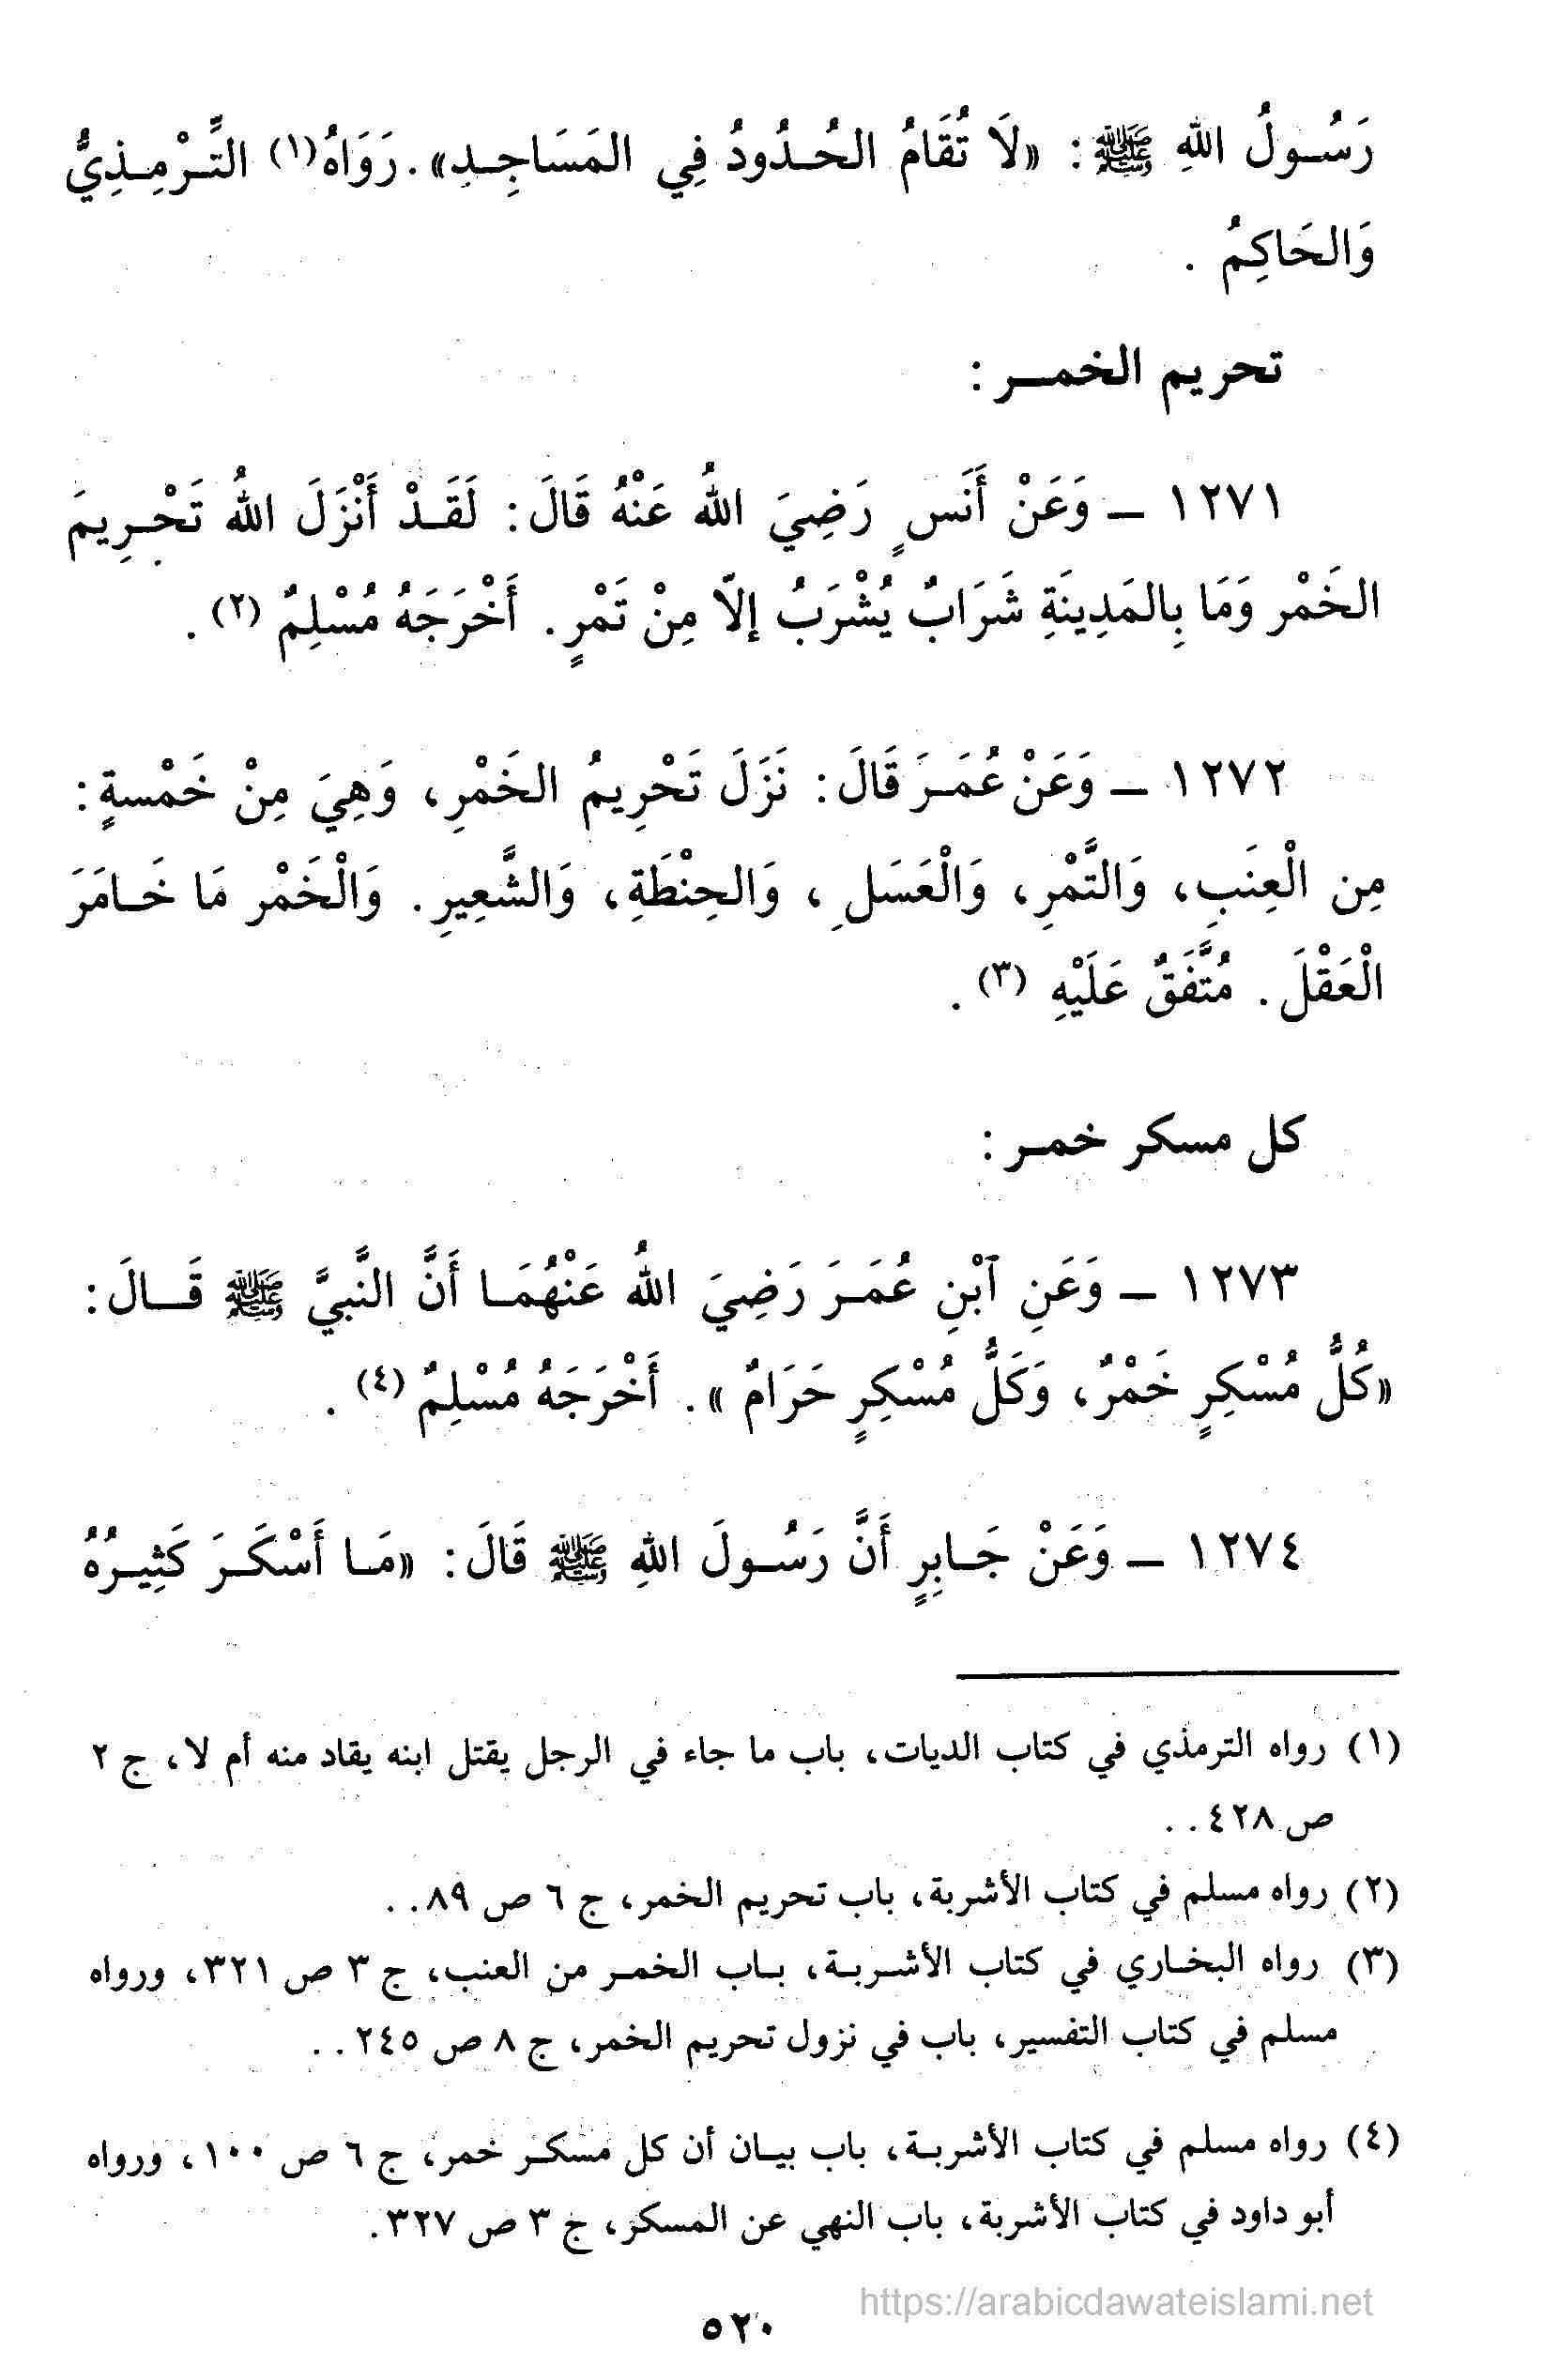 رَسُولُ اللهِ ﷺ: «لَا تُقَامُ الحُدُودُ فِي المَسَاجِدِ». رَوَاهُ(١) التِّرْمِذِيُّ
وَالحَاكِمُ .
تحريم الخمر :
١٢٧١ ــ وَعَنْ أَنَسٍ رَضِيَ اللهُ عَنْهُ قَالَ: لَقَدْ أَنْزَلَ اللهُ تَحْرِيمَ
الخَمْرِ وَمَا بِالمَدِينَةِ شَرَابٌ يُشْرَبُ إلاّ مِنْ تَمْرٍ. أَخْرَجَهُ مُسْلِمٌ (٢) .
١٢٧٢ ــ وَعَنْ عُمَرَ قَالَ: نَزَلَ تَحْرِيمُ الخَمْرِ، وَهِيَ مِنْ خَمْسةٍ:
مِن الْعِنَبِ، وَالتَّمْرِ، وَالْعَسَلِ ، وَالحِنْطَةِ، وَالشَّعِيرِ. وَالْخَمْر مَا خَامَرَ
الْعَقْلَ. مُتَّفَقٌ عَلَيْهِ (٣) .
كل مسكر خمر :
١٢٧٣ ــ وَعَنِ ٱبْنِ عُمَرَ رَضِيَ اللهُ عَنْهُمَا أَنَّ النَّبيَّ ﷺ قَالَ:
«كُلُّ مُسْكِرٍ خَمْرٌ، وَكَلُّ مُسْكِرٍ حَرَامٌ ». أَخْرَجَهُ مُسْلِمٌ (٤) .
١٢٧٤ ــ وَعَنْ جَابِرٍ أَنَّ رَسُولَ اللهِ ﷺ قَالَ: «مَا أَسْكَرَ كَثِيرُهُ
(١) رواه الترمذي في كتاب الديات، باب ما جاء في الرجل يقتل ابنه يقاد منه أم لا، ج ٢
ص ٤٢٨. .
(٢) رواه مسلم في كتاب الأشربة، باب تحريم الخمر، ج ٦ ص ٨٩. .
(٣) رواه البخاري في كتاب الأشربة، باب الخمر من العنب، ج ٣ ص ٣٢١، ورواه
مسلم في كتاب التفسير، باب في نزول تحريم الخمر، ج ٨ ص ٢٤٥. .
(٤) رواه مسلم في كتاب الأشربة، باب بيان أن كل مسكر خمر، ج ٦ ص ١٠٠، ورواه
أبو داود في كتاب الأشربة، باب النهي عن المسكر، ج ٣ ص ٣٢٧.
https://arabicdawateislami.net
٥٢٠